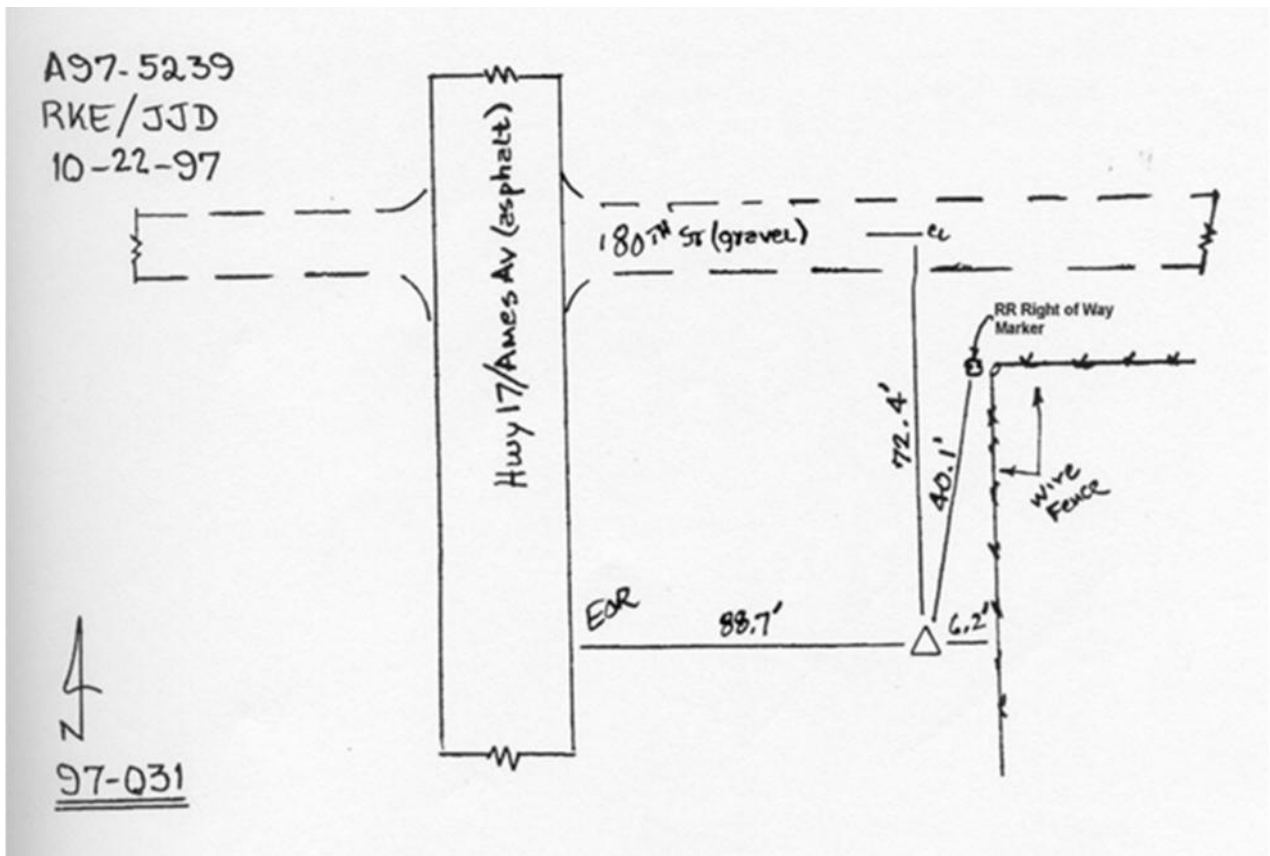 A97-5239
RKE/JJD
10-22-97
Hwy 17/Ames Av (asphalt)
180TH ST (gravel)
CL
RR Right of Way
Marker
72.4'
40.1'
Wire
Fence
EOR
88.7'
6.2'
N
97-031